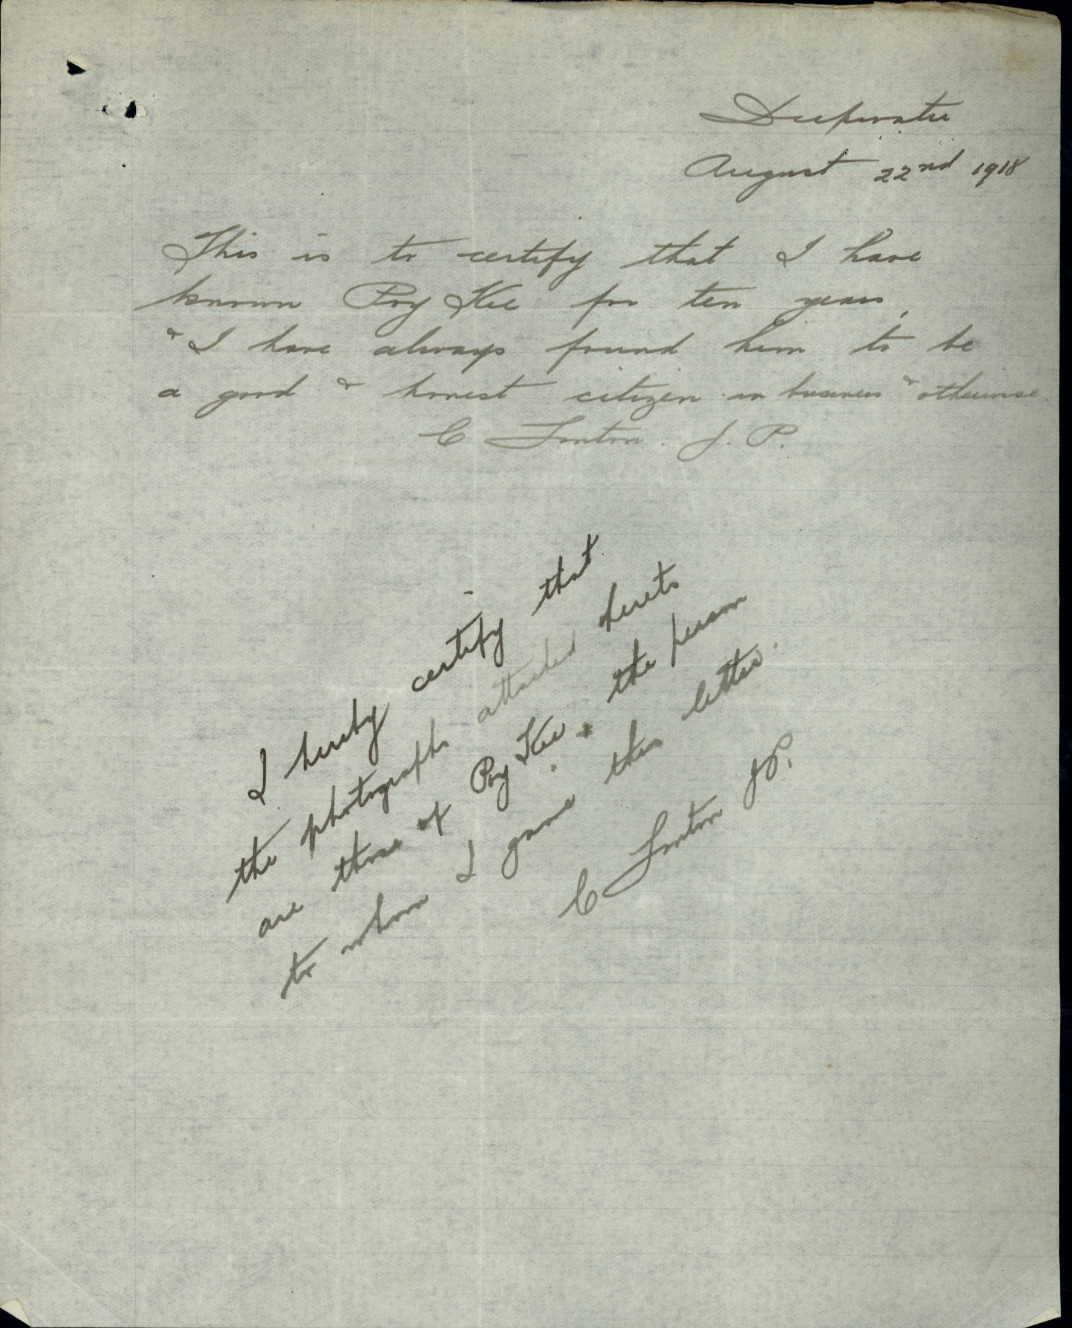 Deepwater
August 22nd 1918
This is to certify that I have
known Poy Kee for ten years,
& I have always found him to be
a good & honest citizen in business & otherwise
C J. P.
I hereby certify that
the photographs attached hereto
are those of Poy Kee, the person
to whom I gave this letter.
C JP.